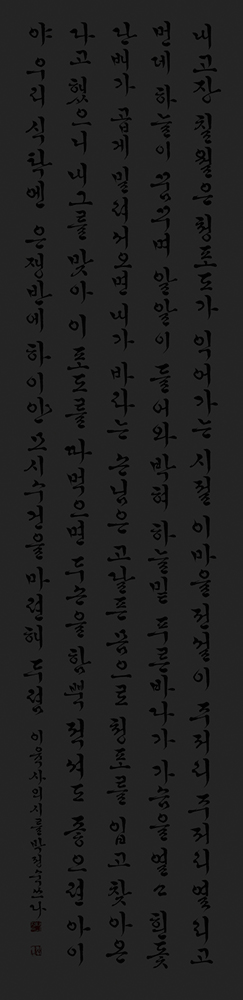 내 고장 칠월은 청포도가 익어가는 시절 이 마을 전설이 주저리 주저리 열리고
먼데 하늘이 꿈꾸며 알알이 들어와 박혀 하늘밑 푸른바다가 가슴을 열고 흰 돛
단 배가 곱게 밀려서 오면 내가 바라는 손님은 고달픈 몸으로 청포를 입고 찾아온
다고 했으니 내 그를 맞아 이 포도를 따 먹으면 두 손을 함뿍 적셔도 좋으련 아이
야 우리 식탁엔 은쟁반에 하이얀 모시수건을 마련해 두렴
이육사의 시를